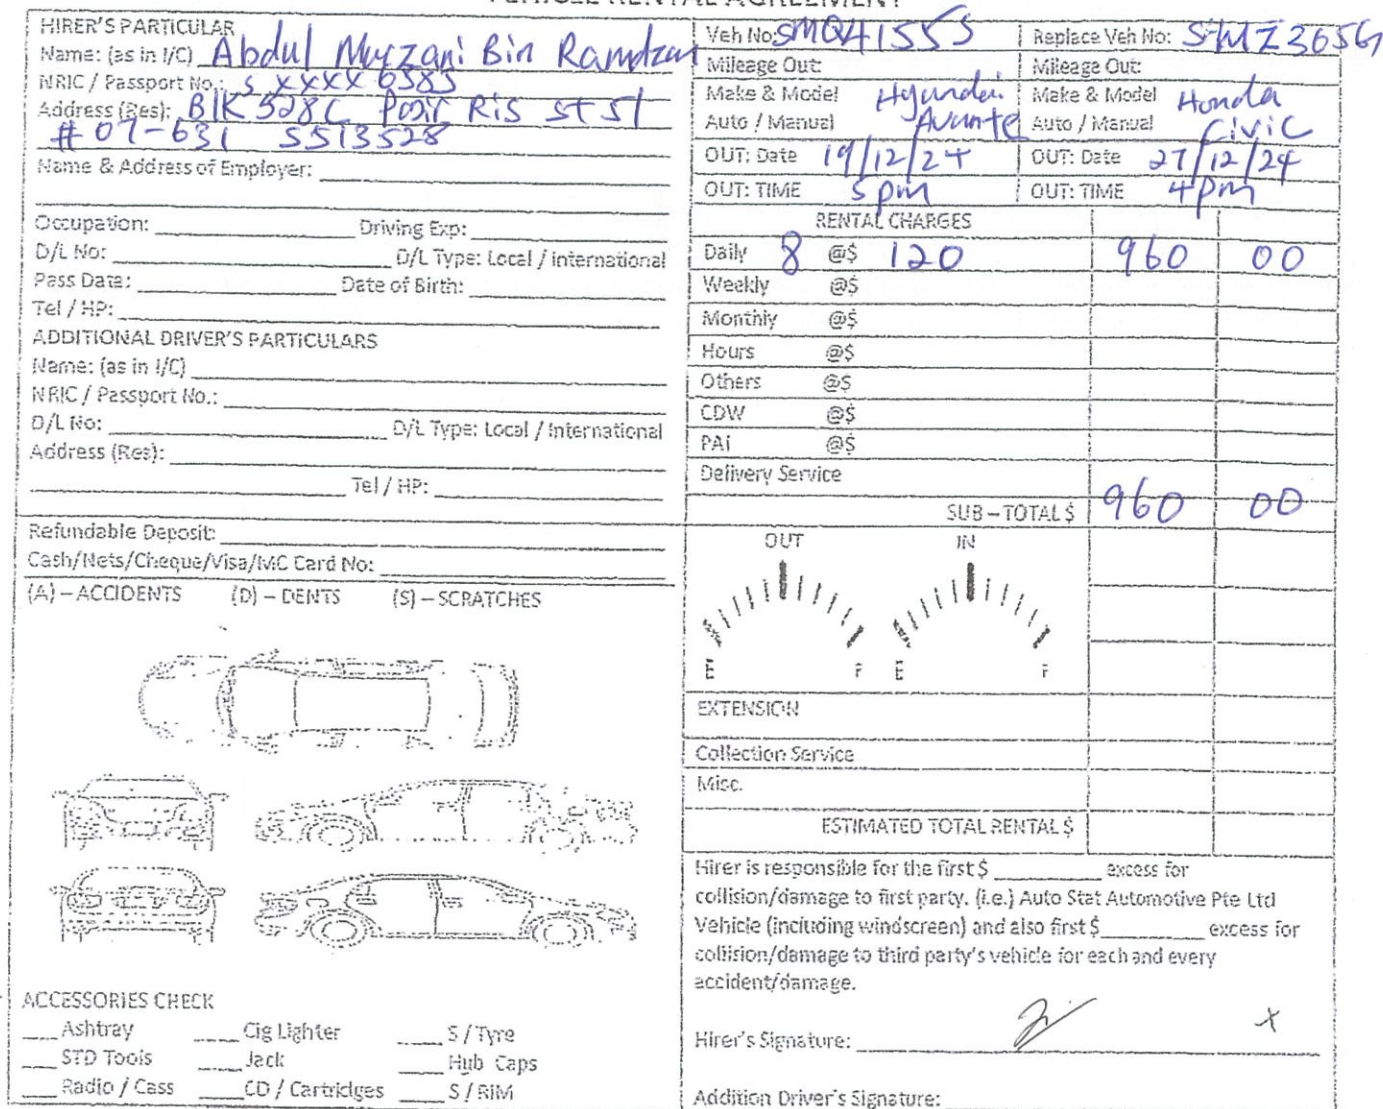 VEHICLE RENTAL AGREEMENT
HIRER'S PARTICULAR
Name: (as in I/C) Abdul Muzzani Bin Ramdzan
NRIC / Passport No.: S XXXX 6585
Address (Res): Blk 528C Pasir Ris St 51
#07-631 S513528
Name & Address of Employer:
Occupation: Driving Exp:
D/L No: D/L Type: Local / International
Pass Date: Date of Birth:
Tel / HP:
ADDITIONAL DRIVER'S PARTICULARS
Name: (as in I/C)
NRIC / Passport No.:
D/L No: D/L Type: Local / International
Address (Res):
Tel / HP:
Refundable Deposit:
Cash/Nets/Cheque/Visa/MC Card No:
(A) – ACCIDENTS (D) – DENTS (S) – SCRATCHES
ACCESSORIES CHECK
Ashtray Cig Lighter S / Tyre
STD Tools Jack Hub Caps
Radio / Cass CD / Cartridges S / RIM
Veh No: SMQ4155S Replace Veh No: SMZ3656G
Mileage Out: Mileage Out:
Make & Model Hyundai Make & Model Honda
Auto / Manual Avante Auto / Manual Civic
OUT: Date 19/12/24 OUT: Date 27/12/24
OUT: TIME 5pm OUT: TIME 4pm
RENTAL CHARGES
Daily 8 @$ 120 960 00
Weekly @$
Monthly @$
Hours @$
Others @$
CDW @$
PAi @$
Delivery Service
SUB – TOTAL $ 960 00
OUT IN
E F E F
EXTENSION
Collection Service
Misc.
ESTIMATED TOTAL RENTAL $
Hirer is responsible for the first $ excess for
collision/damage to first party. (i.e.) Auto Stat Automotive Pte Ltd
Vehicle (including windscreen) and also first $ excess for
collision/damage to third party's vehicle for each and every
accident/damage.
Hirer's Signature: x
Addition Driver's Signature: